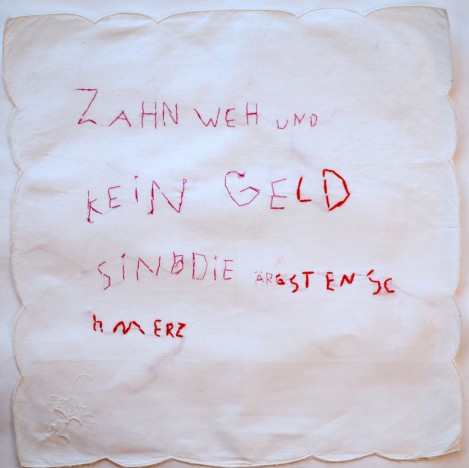 ZAHNWEH UND
KEiN GELD
SiND DIE ÄRGSTEN SC
hMERZ